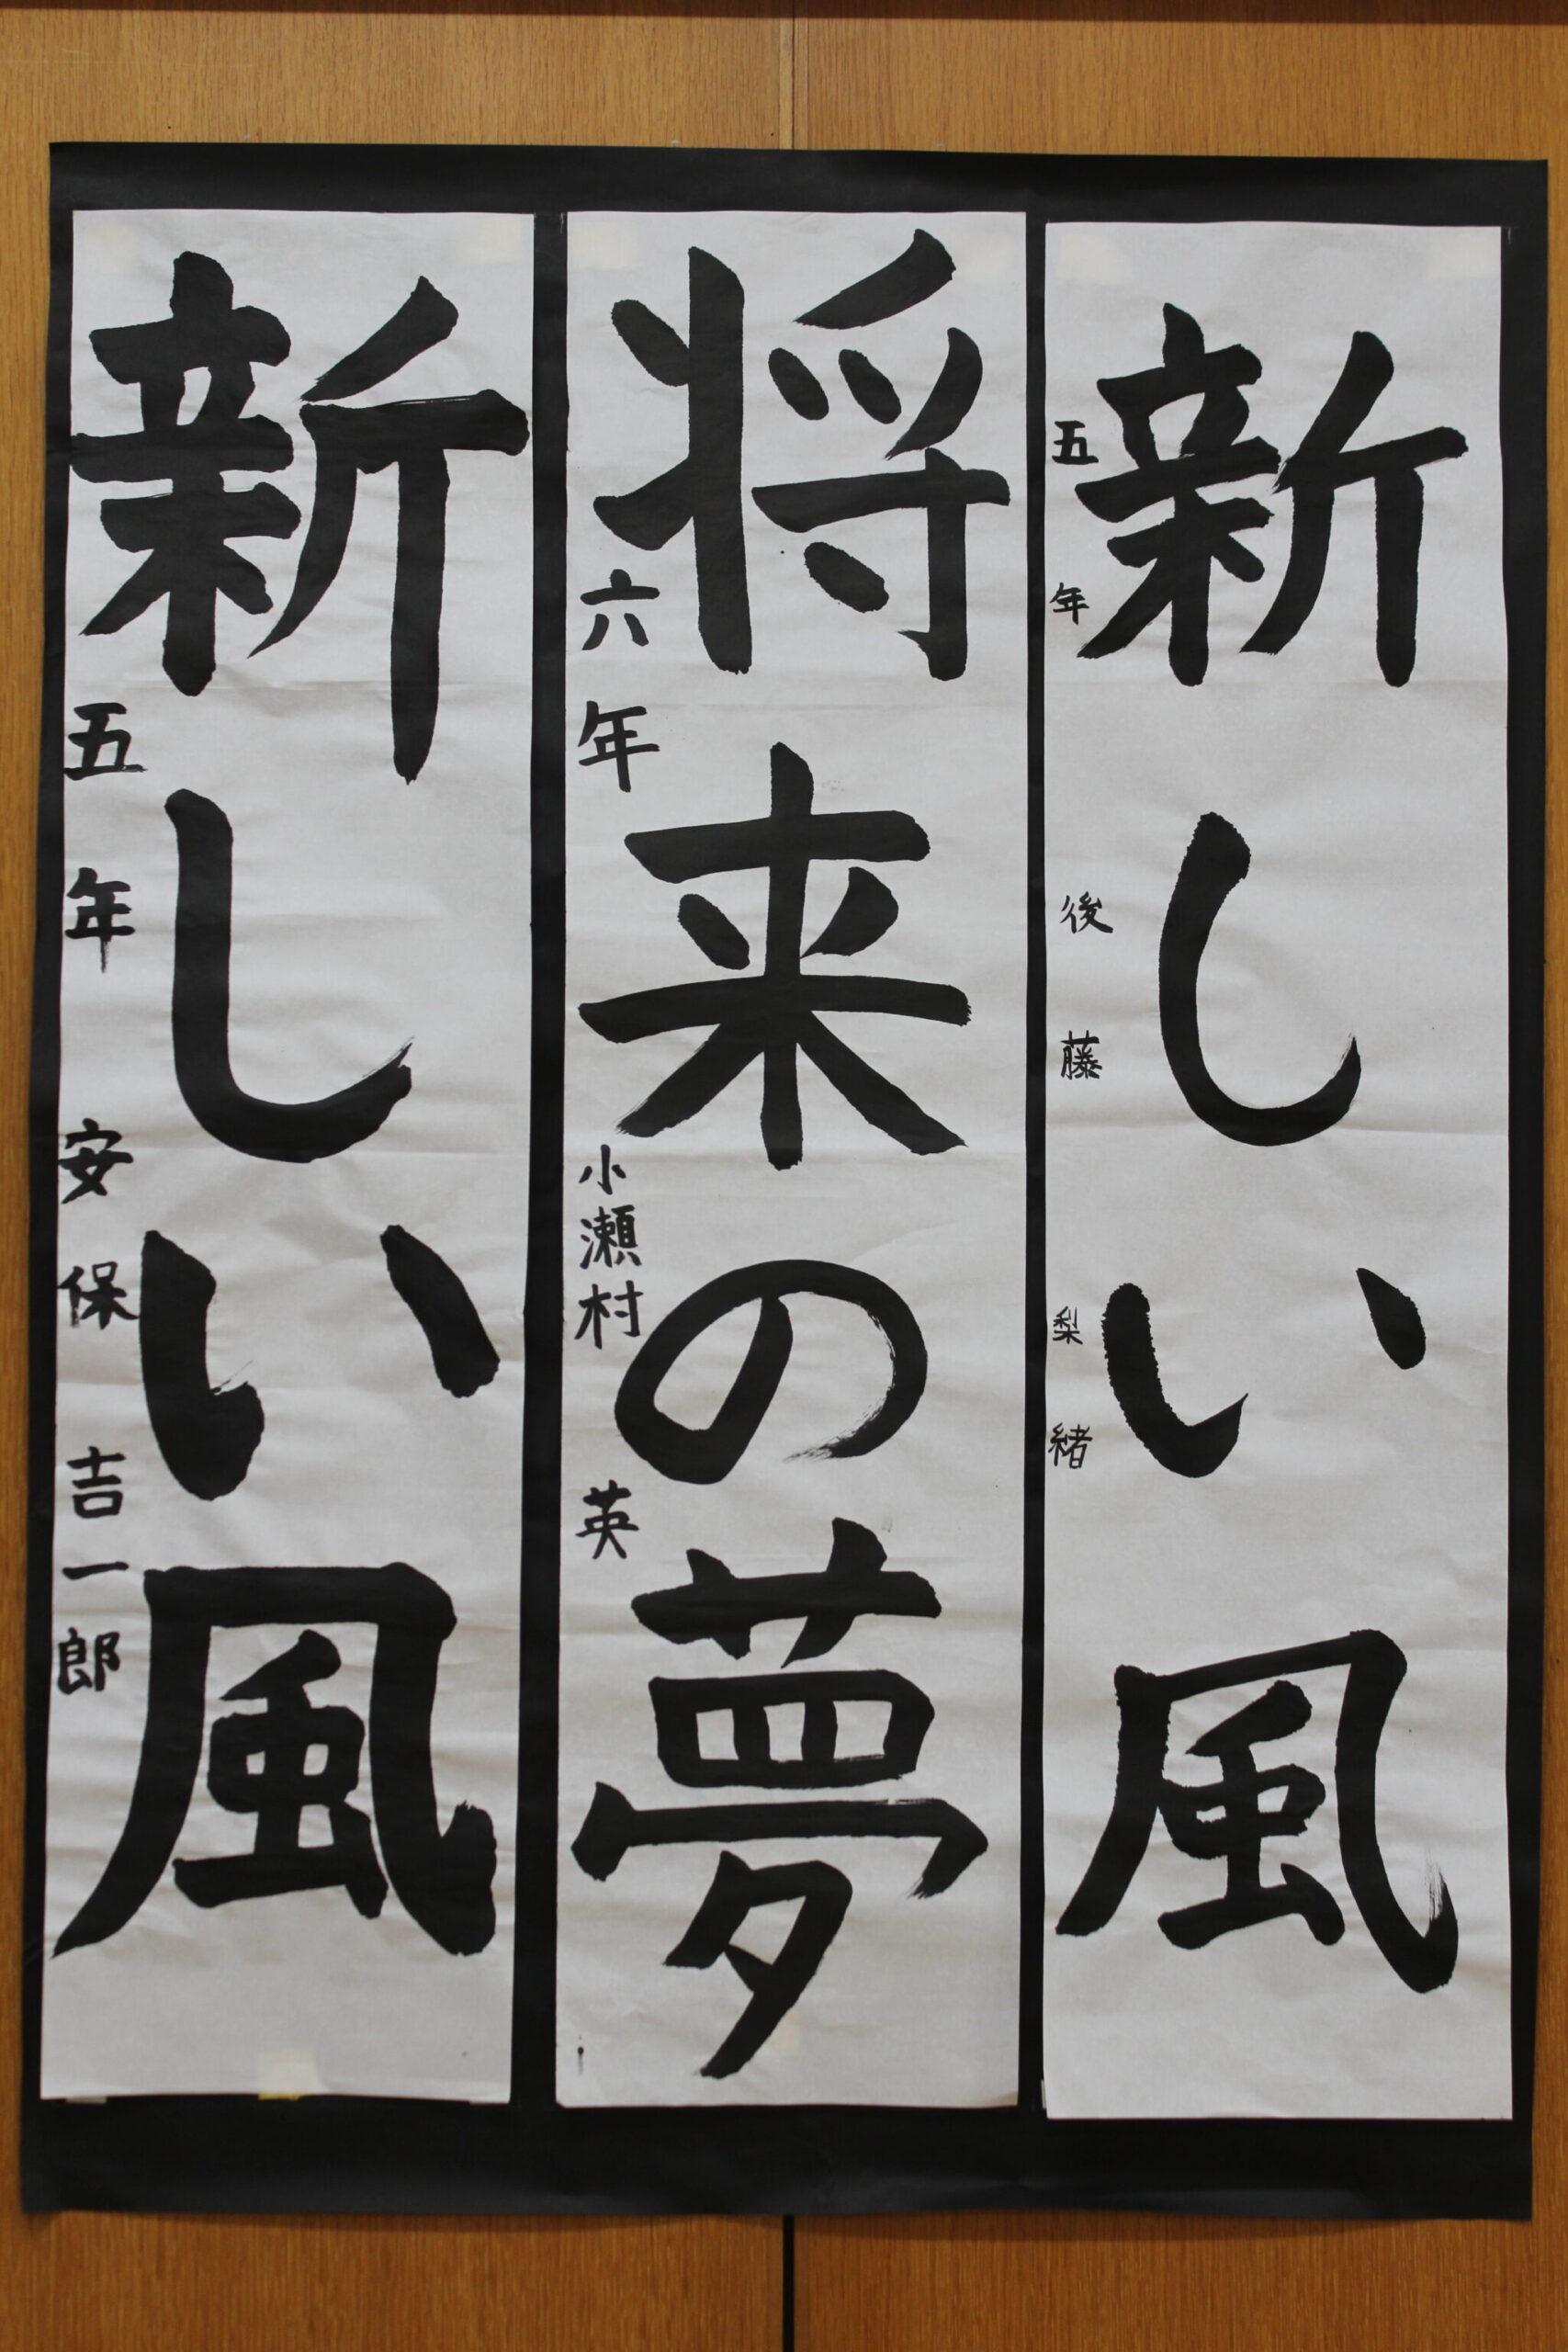 新しい風
五年 後藤 梨緒
将来の夢
六年 小瀬村 英
新しい風
五年 安保 吉一郎